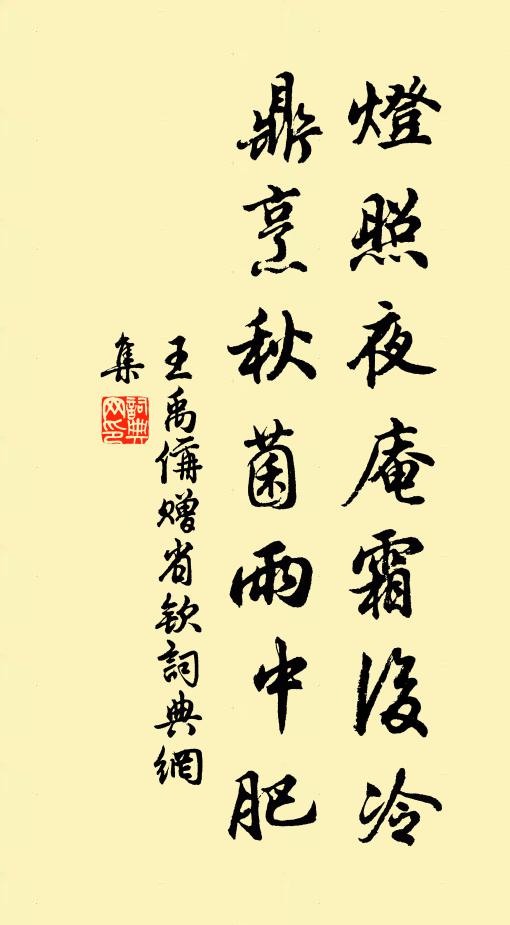 燈照夜庵霜後冷
鼎烹秋菌雨中肥
王禹偁贈省欽詞典網
集
詞典網印